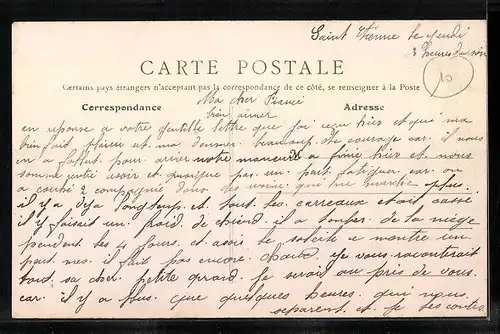 Saint Etienne le jeudi
3 heures du soir
CARTE POSTALE
Certains pays étrangers n'acceptant pas la correspondance de ce côté, se renseigner à la Poste
10
Correspondance
Adresse
Ma cher
bien aimer
en reponse a votre gentille lettre que j'ai reçu hier et qui ma
bien fait plaisir et ma donner beaucoup de courage car il nous
en a fallut pour arriver notre a finie hier et nous
somme entré assoir et quoique pas un petit fatiguer car on
a 2 compagnie dans des que ne marche plus.
il y a deja longtemp. et tout les carreaux etait cassé
il y faisait un froid de chiend. il a tomber de la neige
pendent les 4 jours. et assoir le soleile ce montre un
peut. mes il fait pas encore chaud. je vous raconterait
tout sa cher petite quand je serait au près de vous.
car. il y a plus que quelques heures. qui nous
separent. et je les contes.